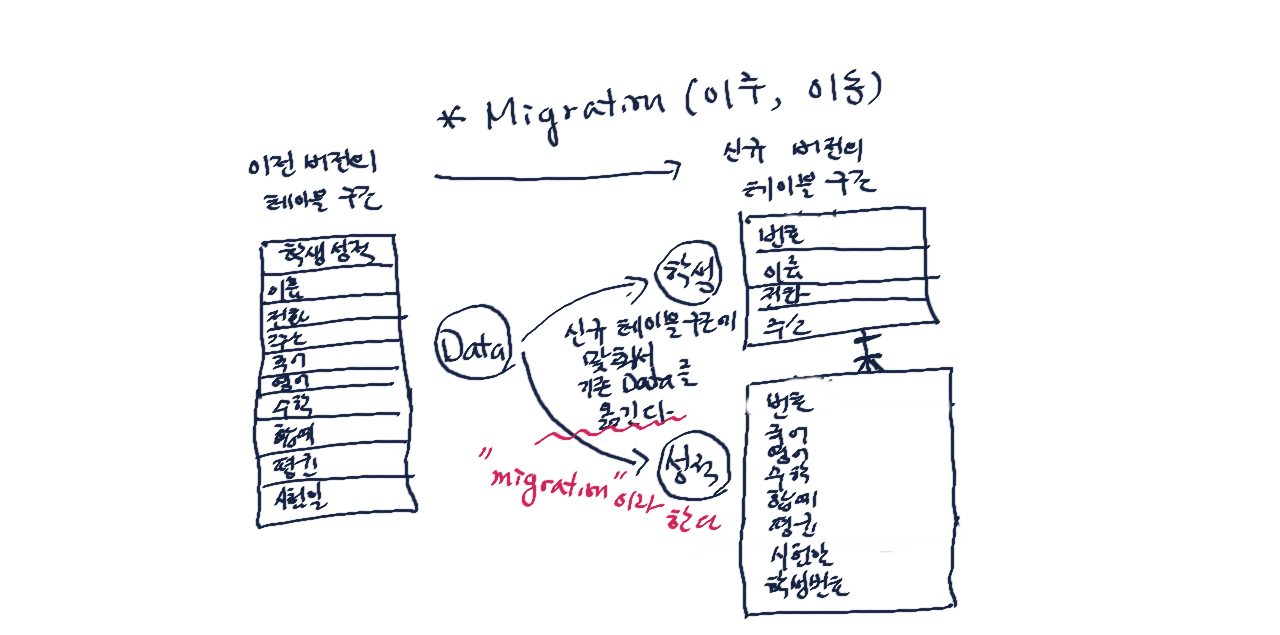 * Migration (이주, 이동)
이전 버전의
테이블 구조
신규 버전의
테이블 구조
학생성적
이름
전화
주소
국어
영어
수학
합계
평균
시험일
Data
학생
신규 테이블구조에
맞춰서
기존 Data를
옮긴다.
성적
"migration"이라
한다
번호
이름
전화
주소
번호
국어
영어
수학
합계
평균
시험일
학생번호